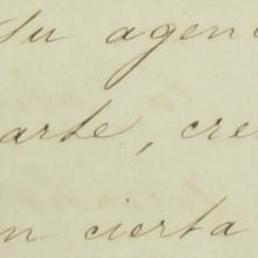 su agen
arte, cre
n cierta